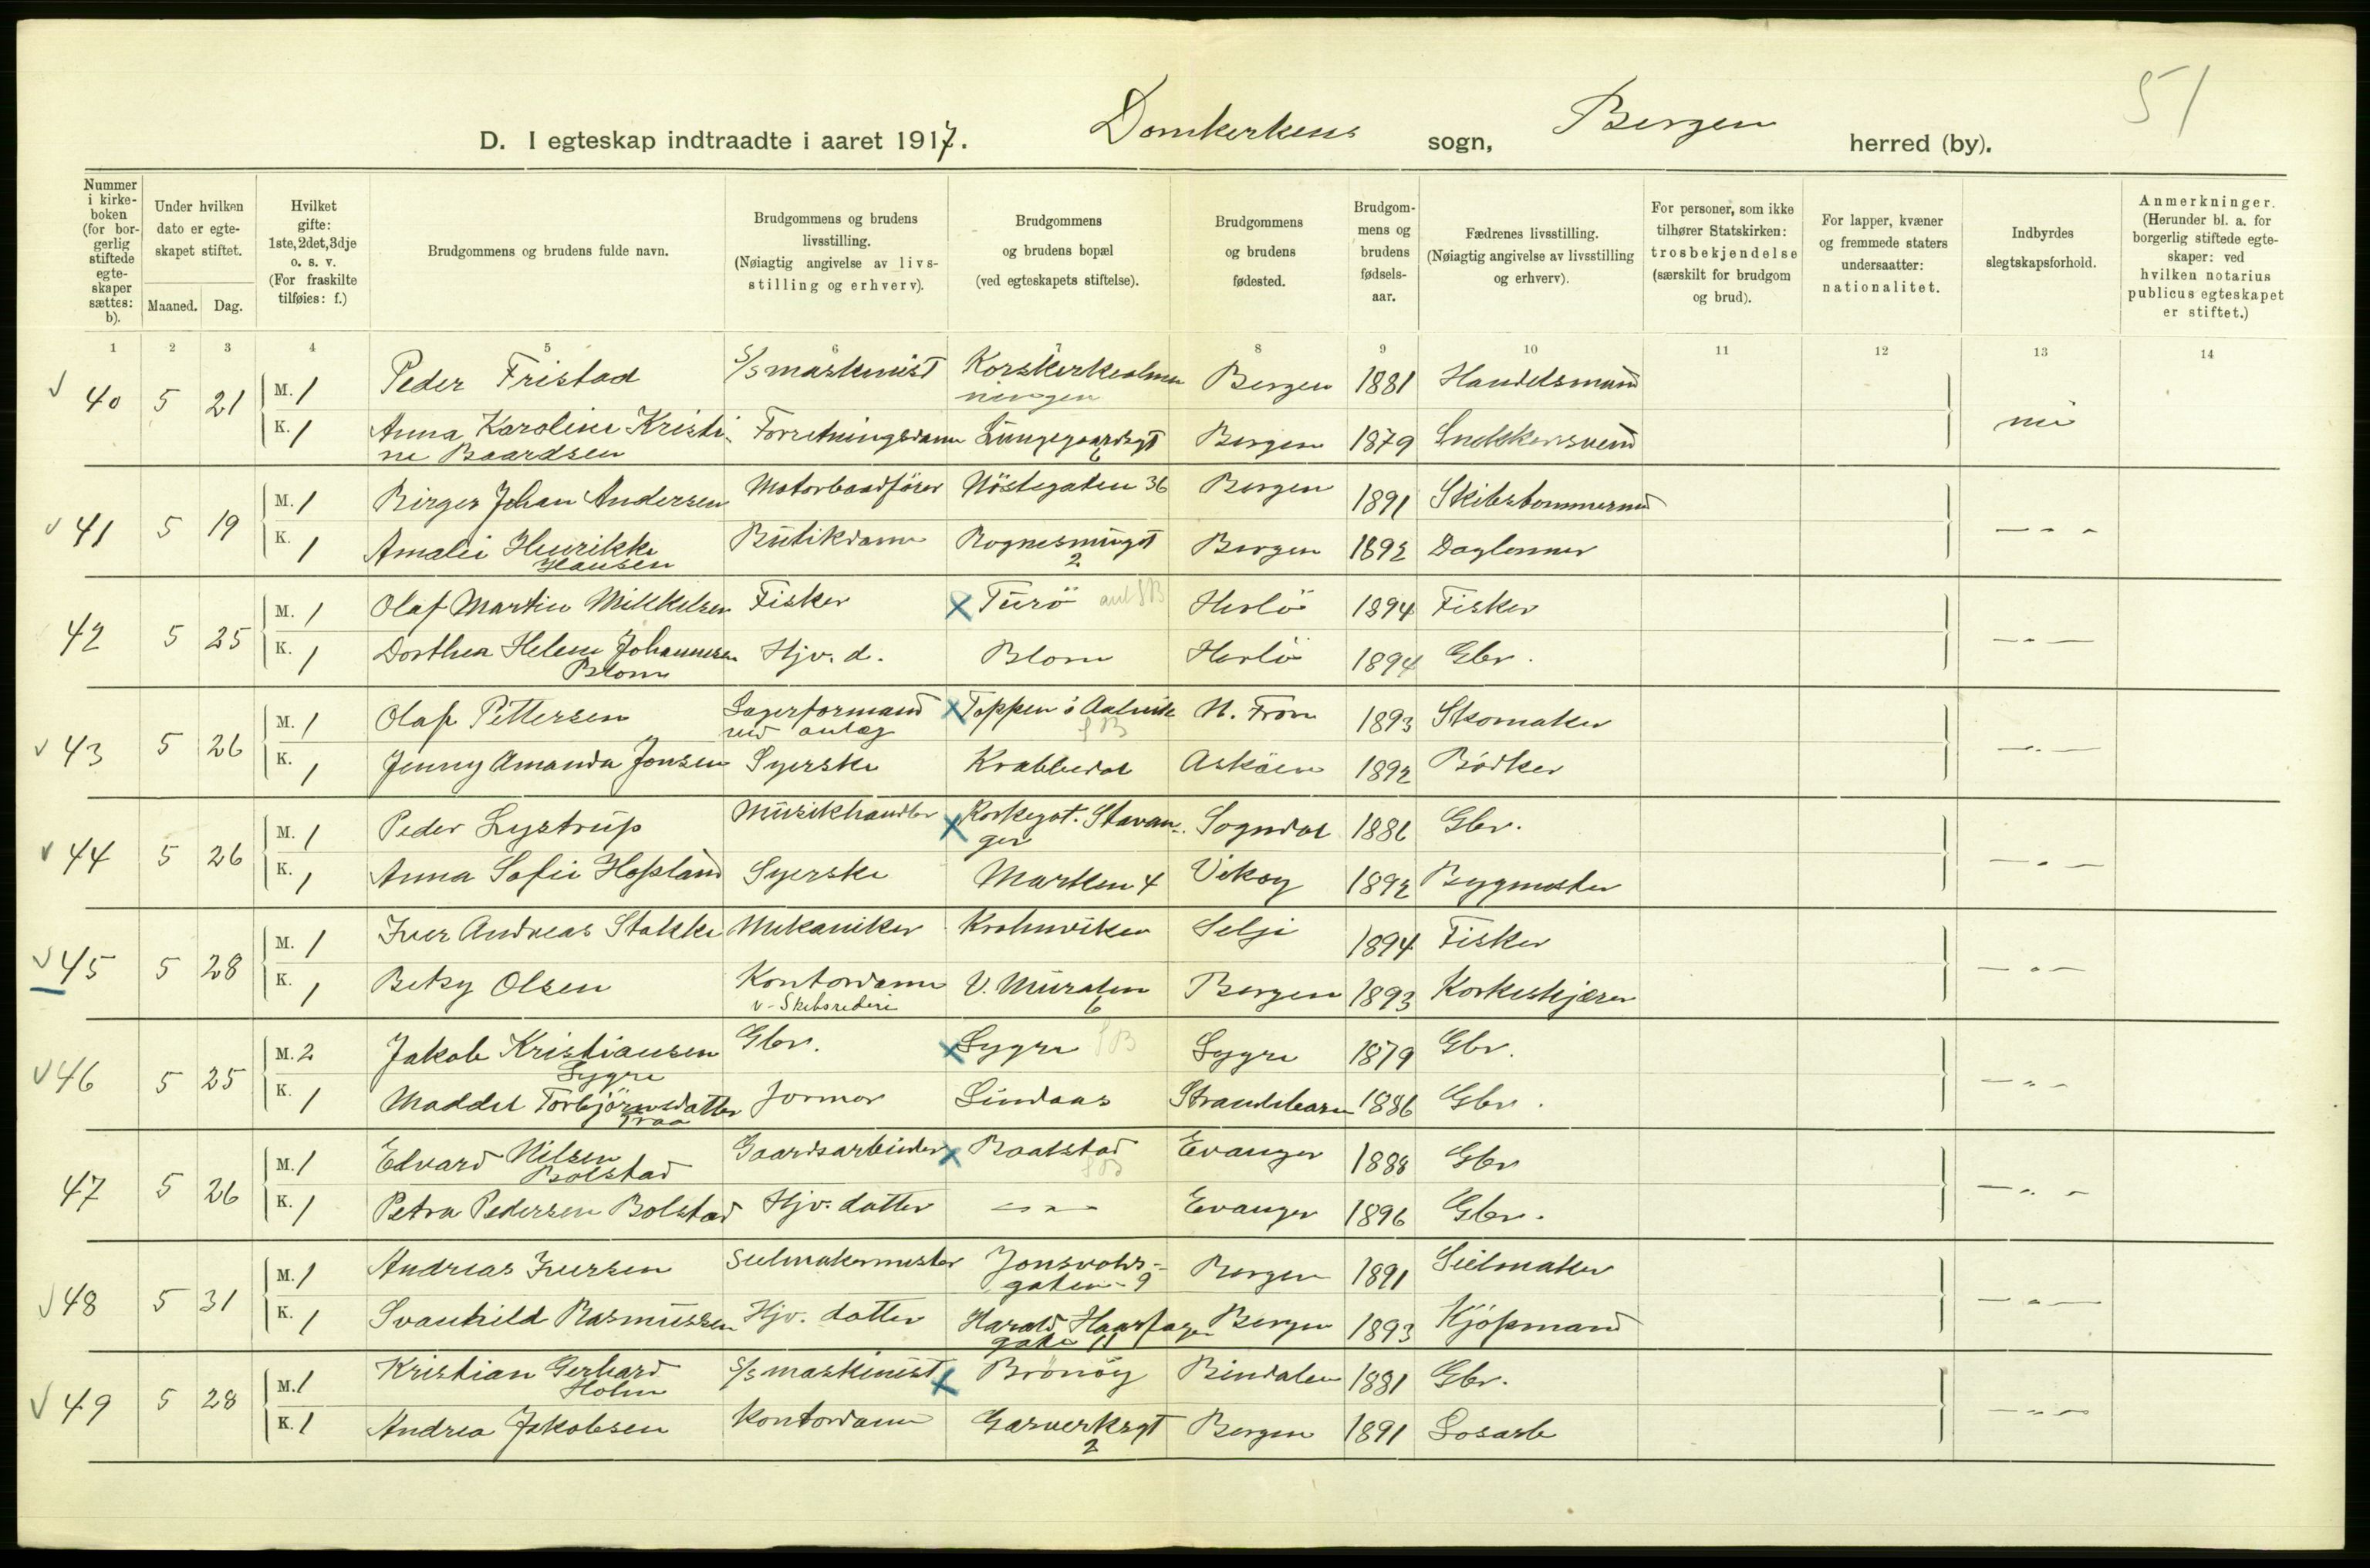 51
D. I egteskap indtraadte i aaret 1917. Domkerkens sogn, Bergen herred (by).
Nummer i kirke-boken (for bor-gerlig stiftede egte-skaper sættes: b).
Under hvilken dato er egte-skapet stiftet.
Maaned. Dag.
Hvilket gifte: 1ste, 2det, 3dje o. s. v. (For fraskilte tilføies: f.)
Brudgommens og brudens fulde navn.
Brudgommens og brudens livsstilling. (Nøiagtig angivelse av livs-stilling og erhverv).
Brudgommens og brudens bopæl (ved egteskapets stiftelse).
Brudgommens og brudens fødested.
Brudgom-mens og brudens fødsels-aar.
Fædrenes livsstilling. (Nøiagtig angivelse av livsstilling og erhverv).
For personer, som ikke tilhører Statskirken: trosbekjendelse (særskilt for brudgom og brud).
For lapper, kvæner og fremmede staters undersaatter: nationalitet.
Indbyrdes slegtskapsforhold.
Anmerkninger. (Herunder bl. a. for borgerlig stiftede egte-skaper: ved hvilken notarius publicus egteskapet er stiftet.)
1 2 3 4 5 6 7 8 9 10 11 12 13 14
40 5 21 M. 1 Peder Fristad S/S maskinist Korskirkealmenningen Bergen 1881 Handelsmand
K. 1 Anna Karoline Kristine Baardsen Forretningsdame Lungegaardsgt 6 Bergen 1879 Snekkersvend
41 5 19 M. 1 Birger Johan Andersen Motorbaadfører Nöstegaten 36 Bergen 1891 Skibstømmermd
K. 1 Amalie Henrikke Hansen Butikdame Rognesmuget 2 Bergen 1892 Daglønner - " -
42 5 25 M. 1 Olaf Martin Mikkelsen Fisker x Turö Herlö 1894 Fisker
K. 1 Dorthea Helene Johannesen Blom Hjv. d. Blom Herlö 1894 Gbr. - " -
43 5 26 M. 1 Olaf Pettersen Lagerformand ved anlæg x Toppen i Aalvik SB N. Fron 1893 Skomaker
K. 1 Jenny Amanda Jonsen Syerske Krabbedal Asköen 1892 Bödker - " -
44 5 26 M. 1 Peder Lystrup Musikhandler x Kirkegt. Stavanger Sogndal 1886 Gbr.
K. 1 Anna Sofie Hopland Syerske Marken 4 Vikøy 1892 Bygmester - " -
45 5 28 M. 1 Iver Andreas Stakke Mekaniker Krohnviken Selje 1894 Fisker
K. 1 Betsy Olsen Kontordame v. Skibsrederi V. Muralm 6 Bergen 1893 Korkeskjærer - " -
46 5 25 M. 2 Jakob Kristiansen Sygre Gbr. x Sygre SB Sygre 1879 Gbr.
K. 1 Maddel Torbjörnsdatter Traa Jormor Lindaas Strandebarm 1886 Gbr. - " -
47 5 26 M. 1 Edvard Nilsen Bolstad Gaardsarbeider x Baalstad SB Evanger 1888 Gbr
K. 1 Petra Pedersen Bolstad Hjv. datter - " - Evanger 1896 Gbr. - " -
48 5 31 M. 1 Andreas Iversen Seilmakermester Jonsvolds-gaten 9 Bergen 1891 Seilmaker
K. 1 Svanhild Rasmussen Hjv. datter Harald Haarfager gate 11 Bergen 1893 Kjöpmand - " -
49 5 28 M. 1 Kristian Gerhard Holm S/S maskinist x Brönöy Bindalen 1881 Gbr.
K. 1 Andrea Jakobsen Kontordame Gasverksgt 2 Bergen 1891 Losarb - " -